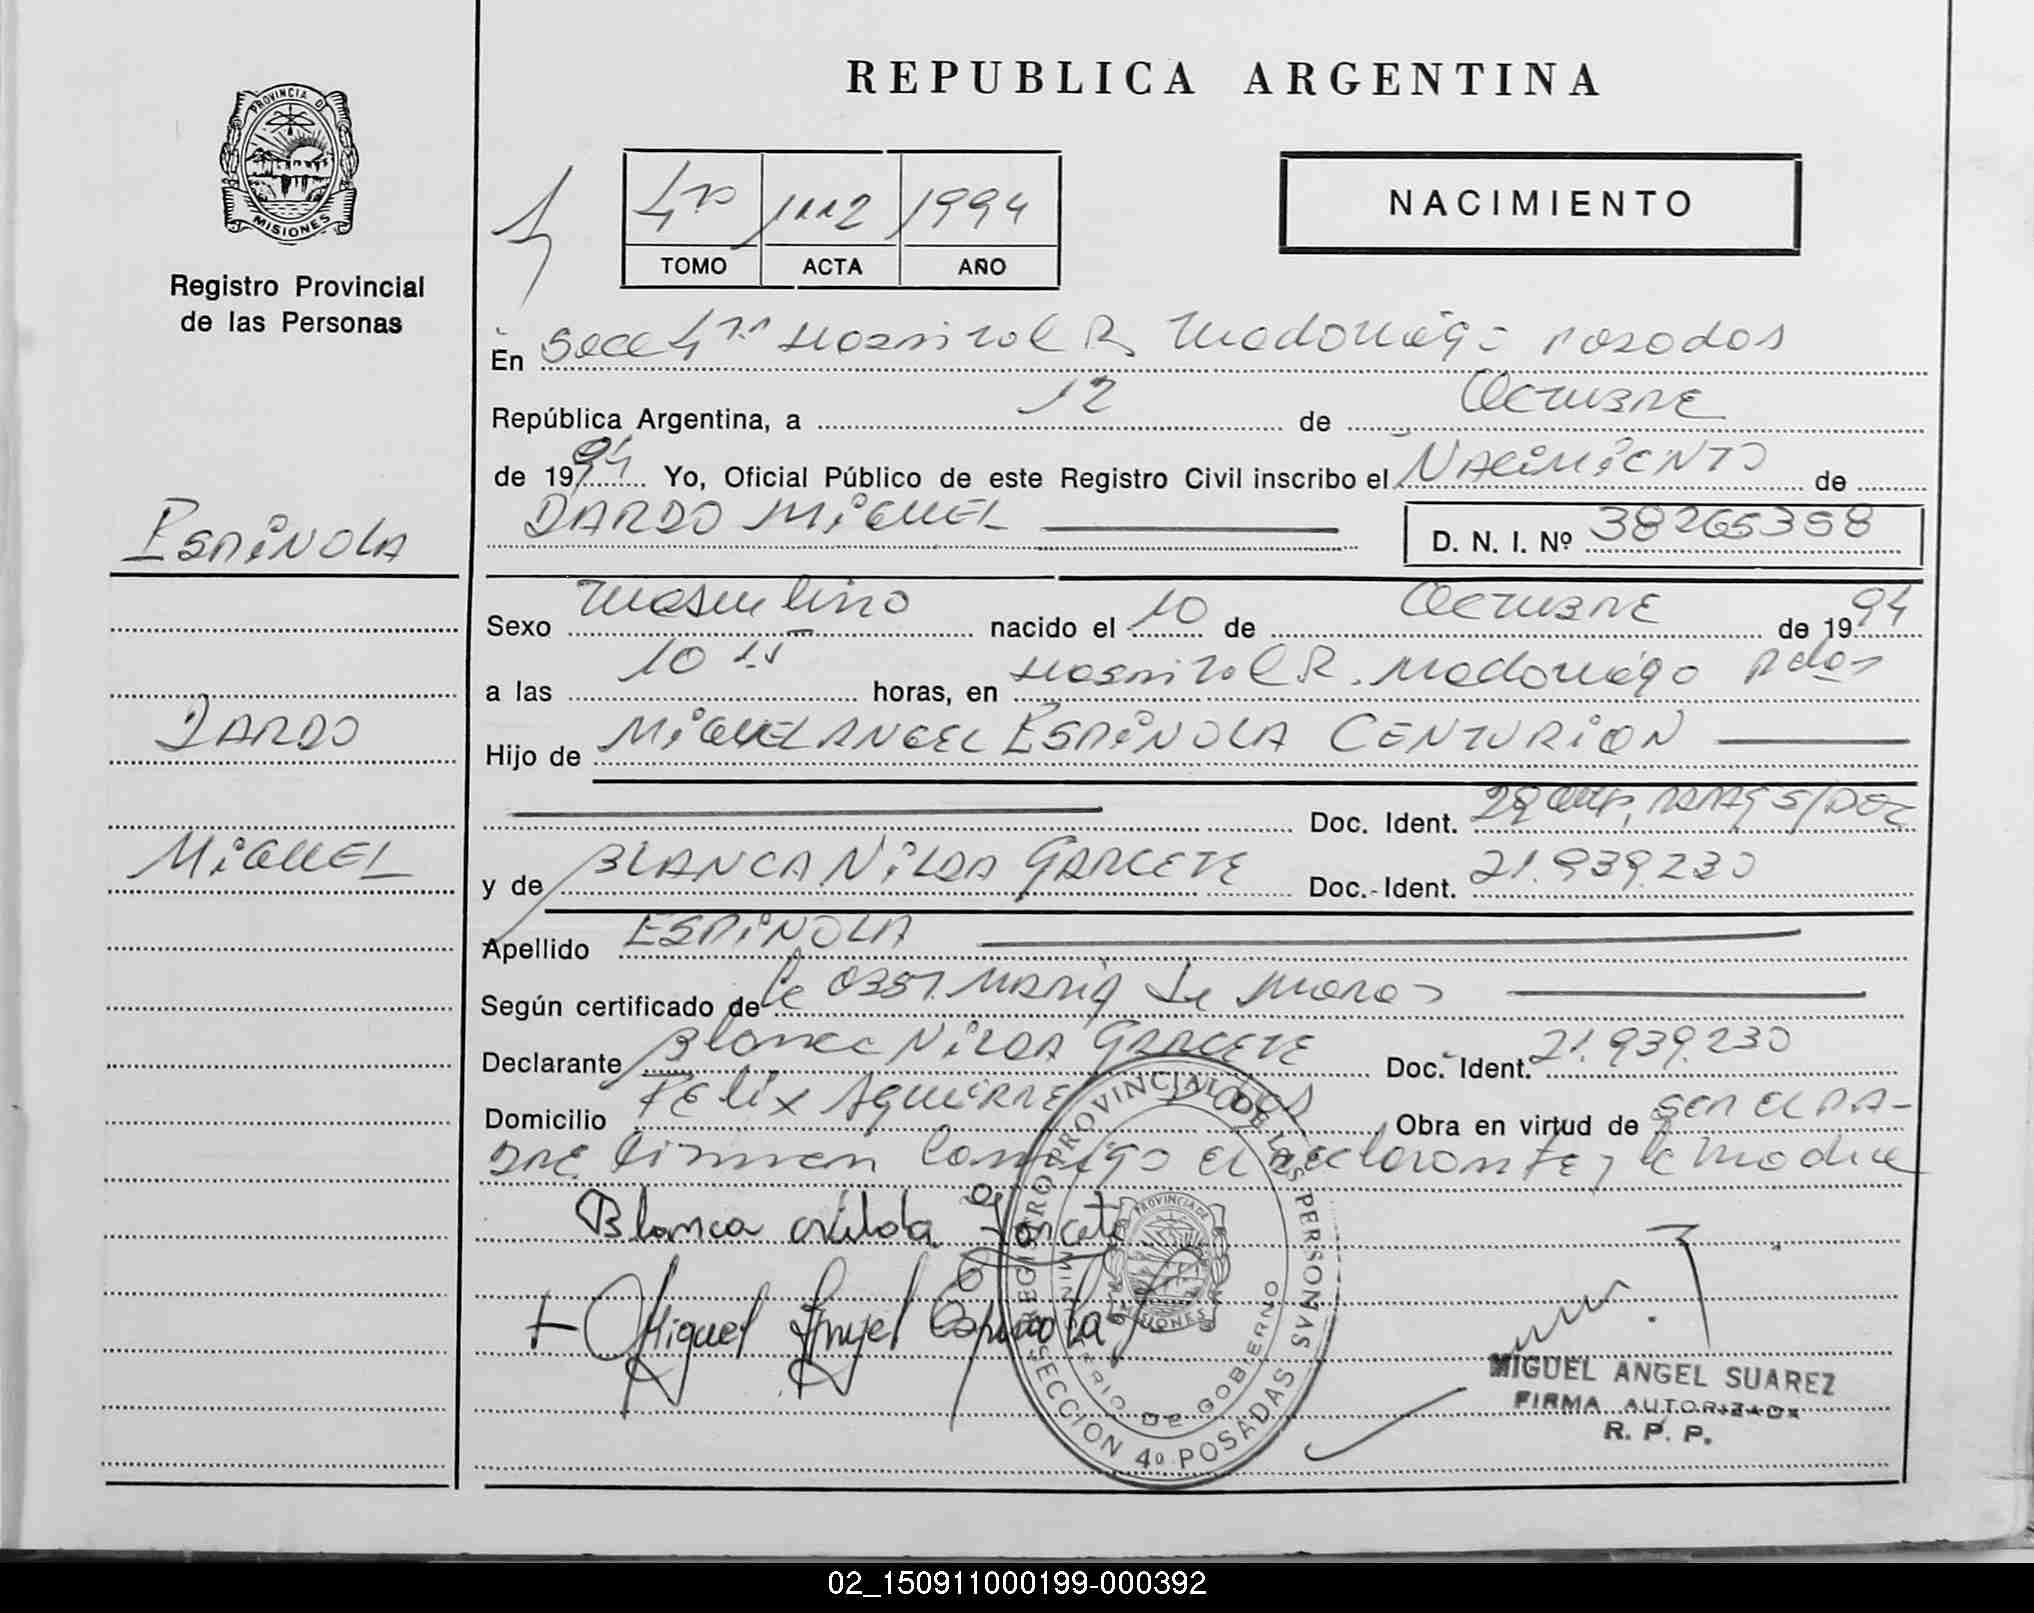 REPUBLICA ARGENTINA
PROVINCIA D
MISIONES
Registro Provincial
de las Personas
4to 1112 1994
TOMO ACTA AÑO
NACIMIENTO
En Secc 4ta Hospital R. Madariaga - Posadas
República Argentina, a 12 de Octubre
de 1994 Yo, Oficial Público de este Registro Civil inscribo el NACIMIENTO de
DARDO MIGUEL D. N. I. Nº 38265358
ESPINOLA
DARDO
MIGUEL
Sexo Masculino nacido el 10 de Octubre de 1994
a las 10 horas, en Hospital R. Madariaga Pdas
Hijo de MIGUEL ANGEL ESPINOLA CENTURION
Doc. Ident.
y de BLANCA NILDA GARCETE Doc. Ident. 21.939.230
Apellido ESPINOLA
Según certificado de la Obst. MARIA de Moras
Declarante Blanca NILDA GARCETE Doc. Ident. 21.939.230
Domicilio FELIX AGUIRRE Obra en virtud de SER EL PA-
DRE firman conmigo el declarante y la madre
Blanca Nilda Garcete
Miguel Angel Espinola
REGISTRO PROVINCIAL DE LAS PERSONAS
MINISTERIO DE GOBIERNO
SECCION 4º POSADAS
PROVINCIA DE
MISIONES
MIGUEL ANGEL SUAREZ
FIRMA AUTORIZADA
R. P. P.
02_150911000199-000392